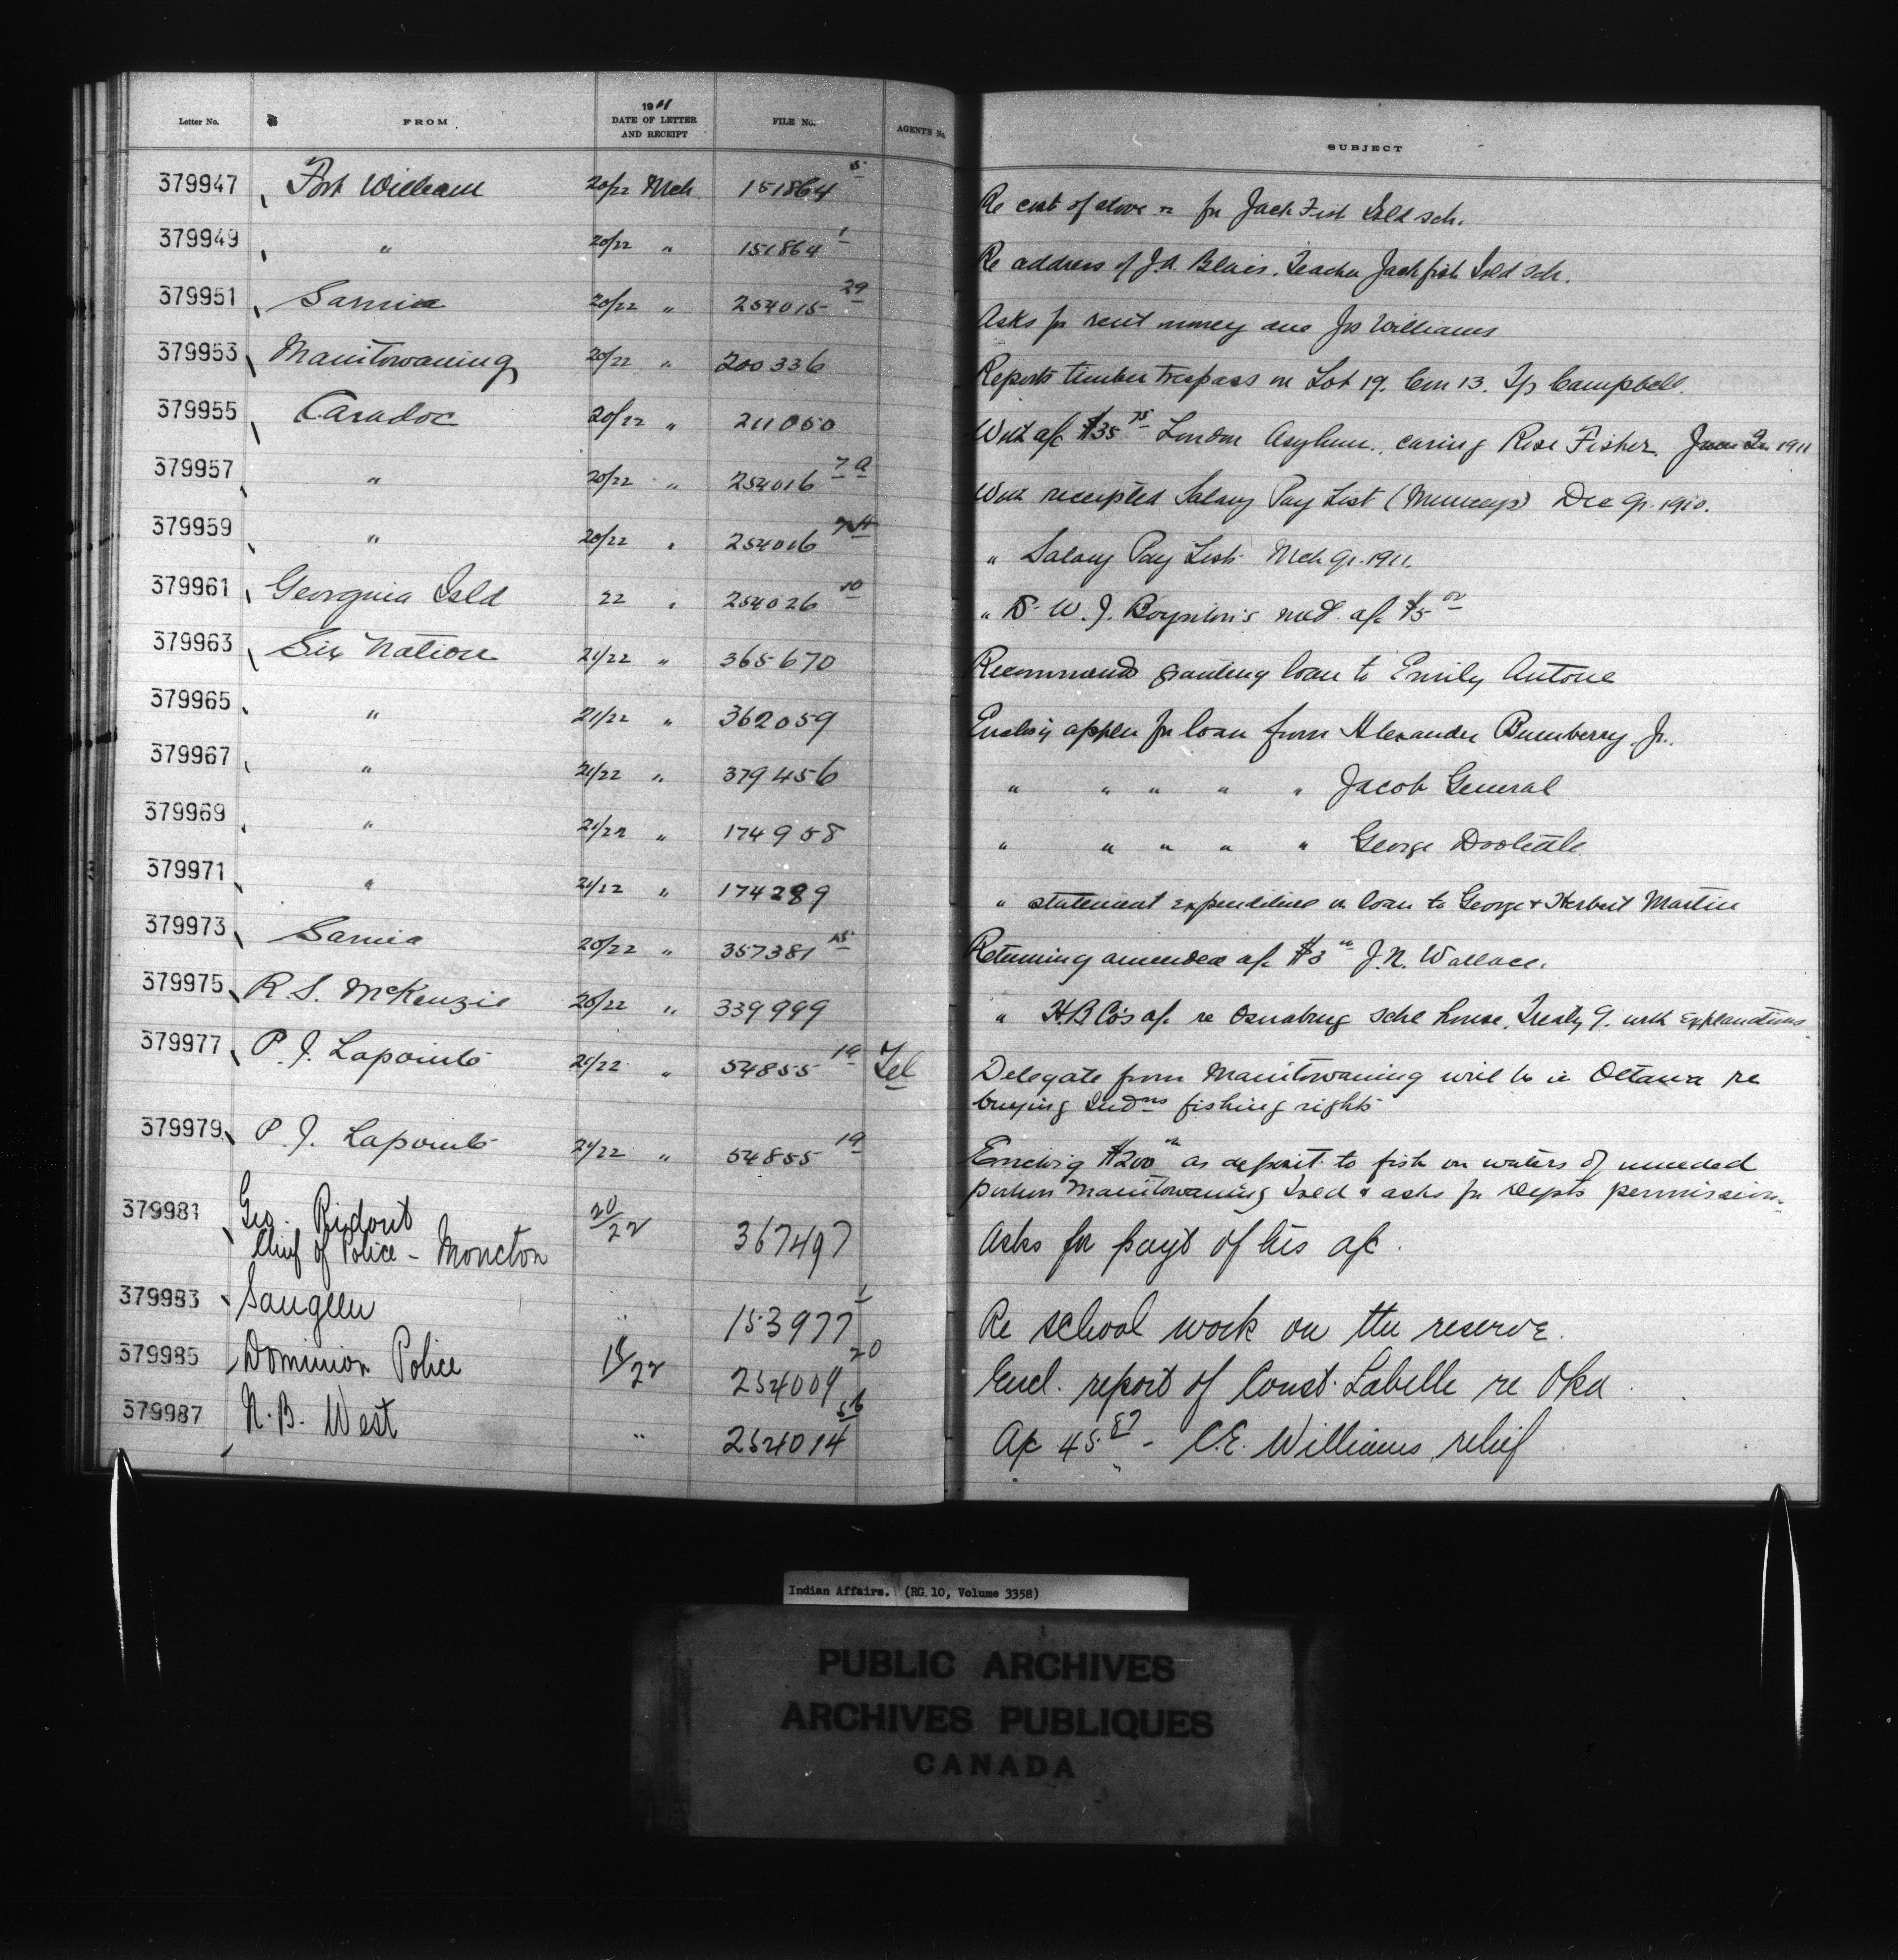 Letter No. FROM 1911 DATE OF LETTER AND RECEIPT FILE No. AGENT'S No. SUBJECT
379947 Fort William 20/22 Mch 151864 5 Re cost of stove for Jack Fish Isld sch.
379949 " 20/22 " 151864 1 Re address of J.A. Blais. Teacher Jackfish Isld sch.
379951 Sarnia 20/22 " 254015 29 Asks for rent money due Jos Williams
379953 Manitowaning 20/22 " 200336 Reports timber trespass on Lot 19. Con 13. Tp Campbell.
379955 Caradoc 20/22 " 211050 With a/c $35 75 London Asylum, caring Rose Fisher. 1911
379957 " 20/22 " 254016 7A With receipted Salary Pay List (Munceys) Dec qr. 1910.
379959 " 20/22 " 254016 7A " Salary Pay List Mch qr. 1911.
379961 Georgina Isld 22 " 254026 10 " Dr W. J. Boynton's med. a/c $5 00
379963 Six Nation 21/22 " 365670 Recommends granting loan to Emily Antone
379965 " 21/22 " 362059 Enclosg applen for loan from Alexander Bumberry Jr.
379967 " 21/22 " 379456 " " " " " Jacob General
379969 " 21/22 " 174958 " " " " " George Doolittle
379971 " 21/22 " 174289 " statement expenditure on loan to George & Herbert Martin
379973 Sarnia 20/22 " 357381 15 Returning amended a/c $3 00 J.N. Wallace.
379975 R S. McKenzie 20/22 " 339999 " H.B Co's a/c re Osnabrug schl house, Treaty 9. with explanations
379977 P. J. Lapointe 21/22 " 54855 19 Tel Delegate from Manitowaning will be in Ottawa re
buying Indns fishing rights
379979 P. J. Lapointe 21/22 " 54855 19 Enclosig $200 00 as deposit to fish on waters of unceded
portion Manitowaning Isld & asks for Depts permission.
379981 Geo. Ridout 20/22 367497 Asks for payt of his a/c.
Chief of Police - Moncton
379983 Saugeen " 153977 1 Re school work on the reserve.
379985 Dominion Police 18/22 254009 20 Encl. report of Const. Labelle re Oka
379987 N. B. West " 254014 56 A/c 45.87 - C.E. Williams, relief
Indian Affairs. (RG 10, Volume 3358)
PUBLIC ARCHIVES
ARCHIVES PUBLIQUES
CANADA